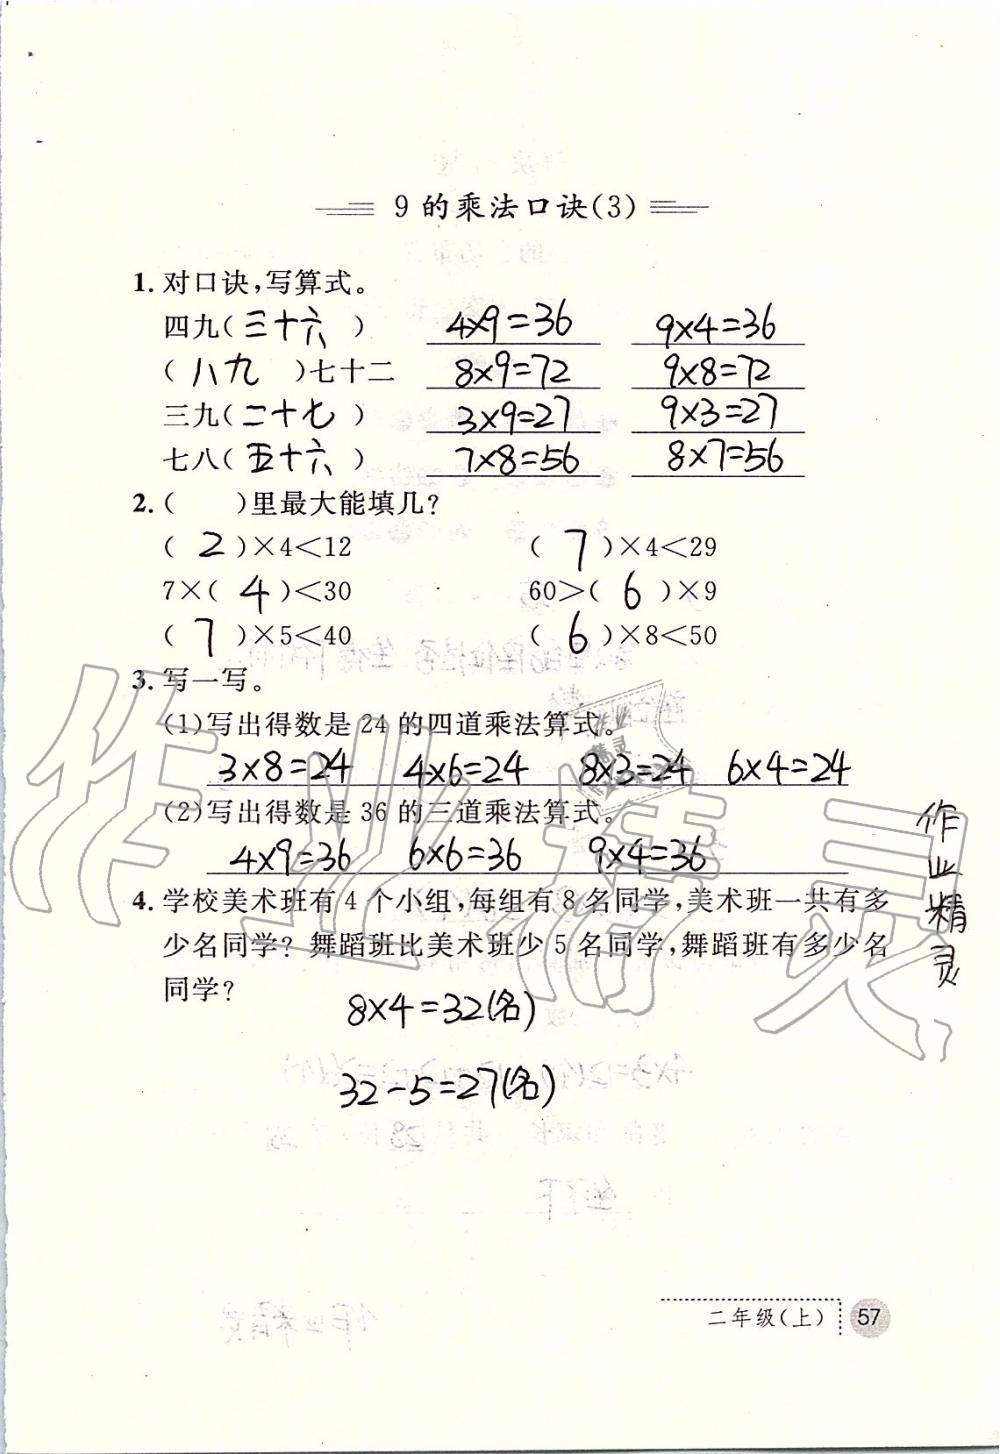 9的乘法口诀(3)
1. 对口诀,写算式。
四九(三十六) 4×9=36 9×4=36
(八九)七十二 8×9=72 9×8=72
三九(二十七) 3×9=27 9×3=27
七八(五十六) 7×8=56 8×7=56
2. ( )里最大能填几?
(2)×4<12 (7)×4<29
7×(4)<30 60>(6)×9
(7)×5<40 (6)×8<50
3. 写一写。
(1)写出得数是24的四道乘法算式。
3×8=24 4×6=24 8×3=24 6×4=24
(2)写出得数是36的三道乘法算式。
4×9=36 6×6=36 9×4=36
4. 学校美术班有4个小组,每组有8名同学,美术班一共有多
少名同学?舞蹈班比美术班少5名同学,舞蹈班有多少名
同学?
8×4=32(名)
32-5=27(名)
作业精灵
作业精灵
作业
精灵
二年级(上) 57